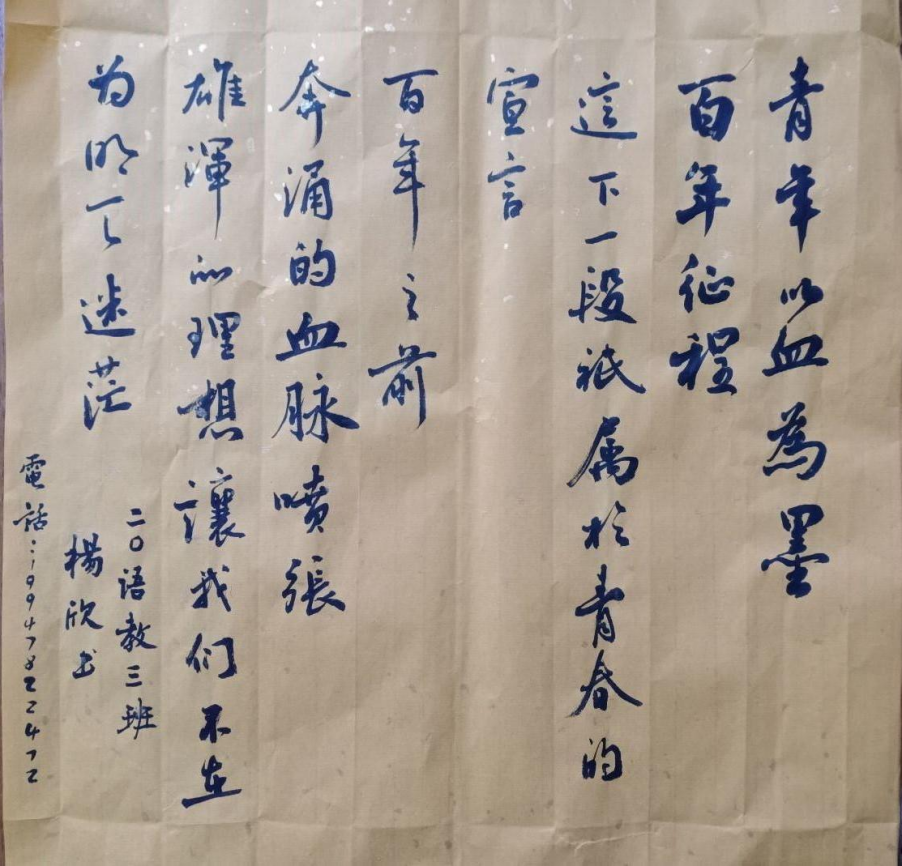 青年以血為墨
百年征程
這下一段祇属於青春的
宣言
百年之前
奔涌的血脉喷張
雄渾的理想讓我们不在
为明天迷茫
二〇语教三班
楊欣书
電話：19947822472